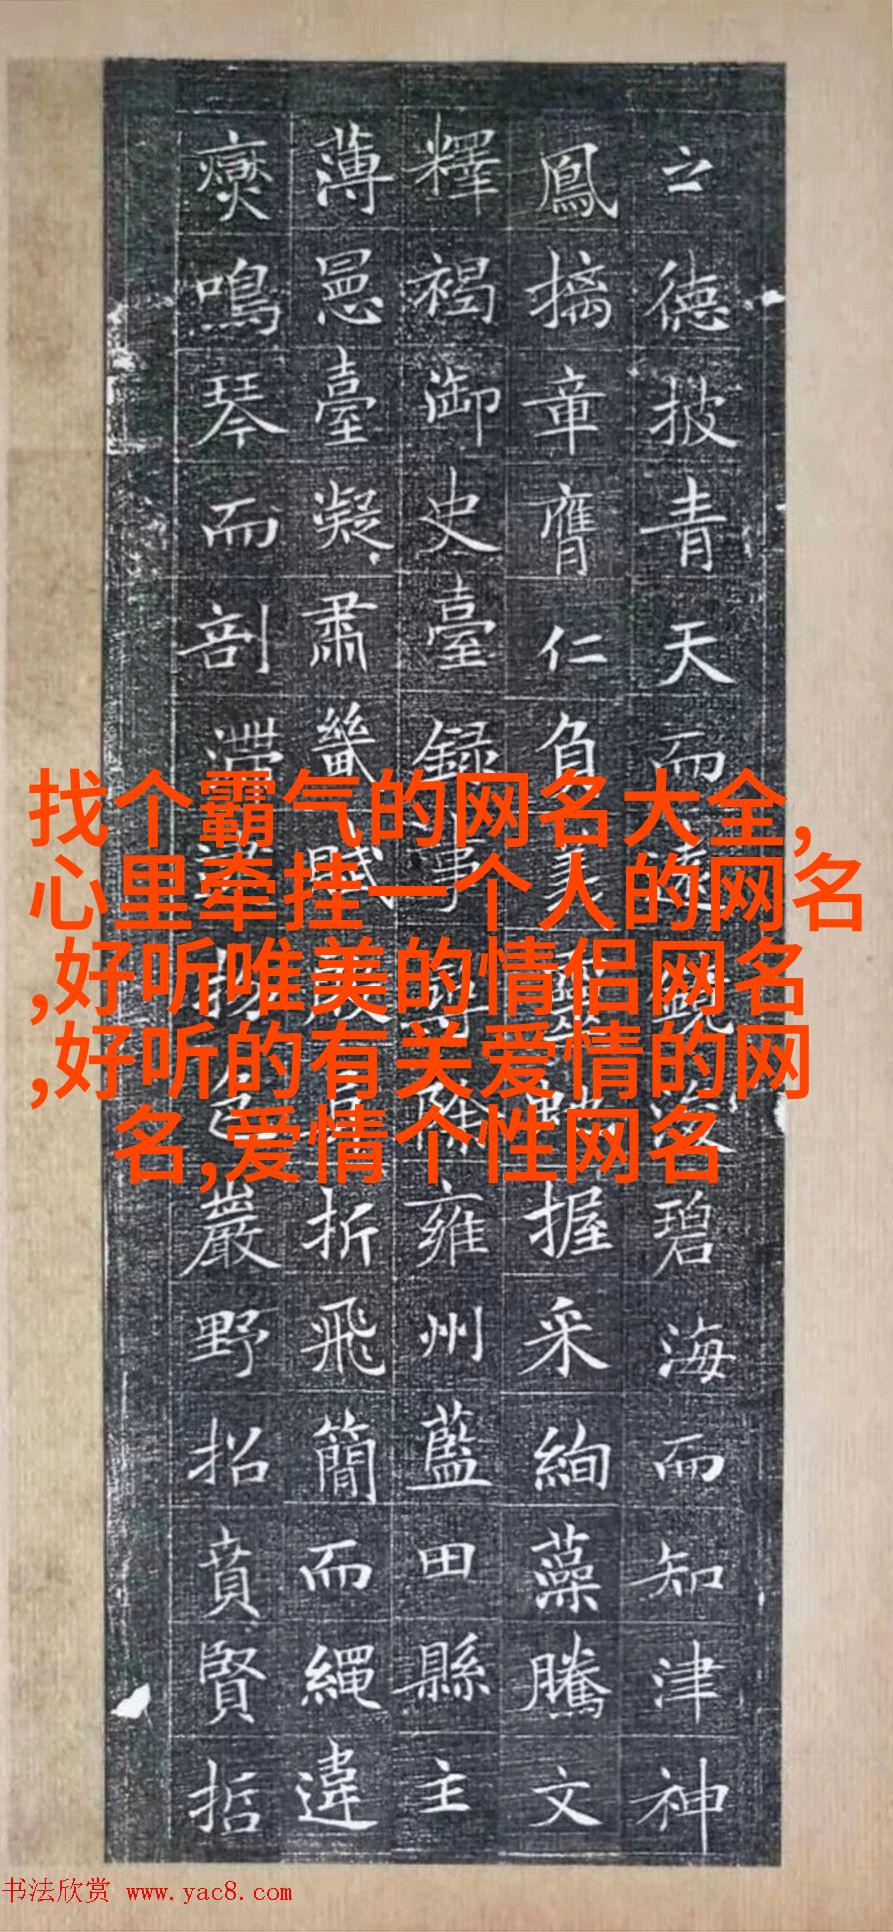 之德披青天而遠
碧海而知津神
鳳摛章膺仁負
握采絢藻騰文
釋褐御史臺録事
雍州藍田縣主
薄邑臺凝肅畿賦
折飛簡而繩違
㷼鳴琴而剖滯
巖野招賁賢哲
找个霸气的网名大全,
心里牵挂一个人的网名
,好听唯美的情侣网名
,好听的有关爱情的网
名,爱情个性网名
书法欣赏 www.yac8.com